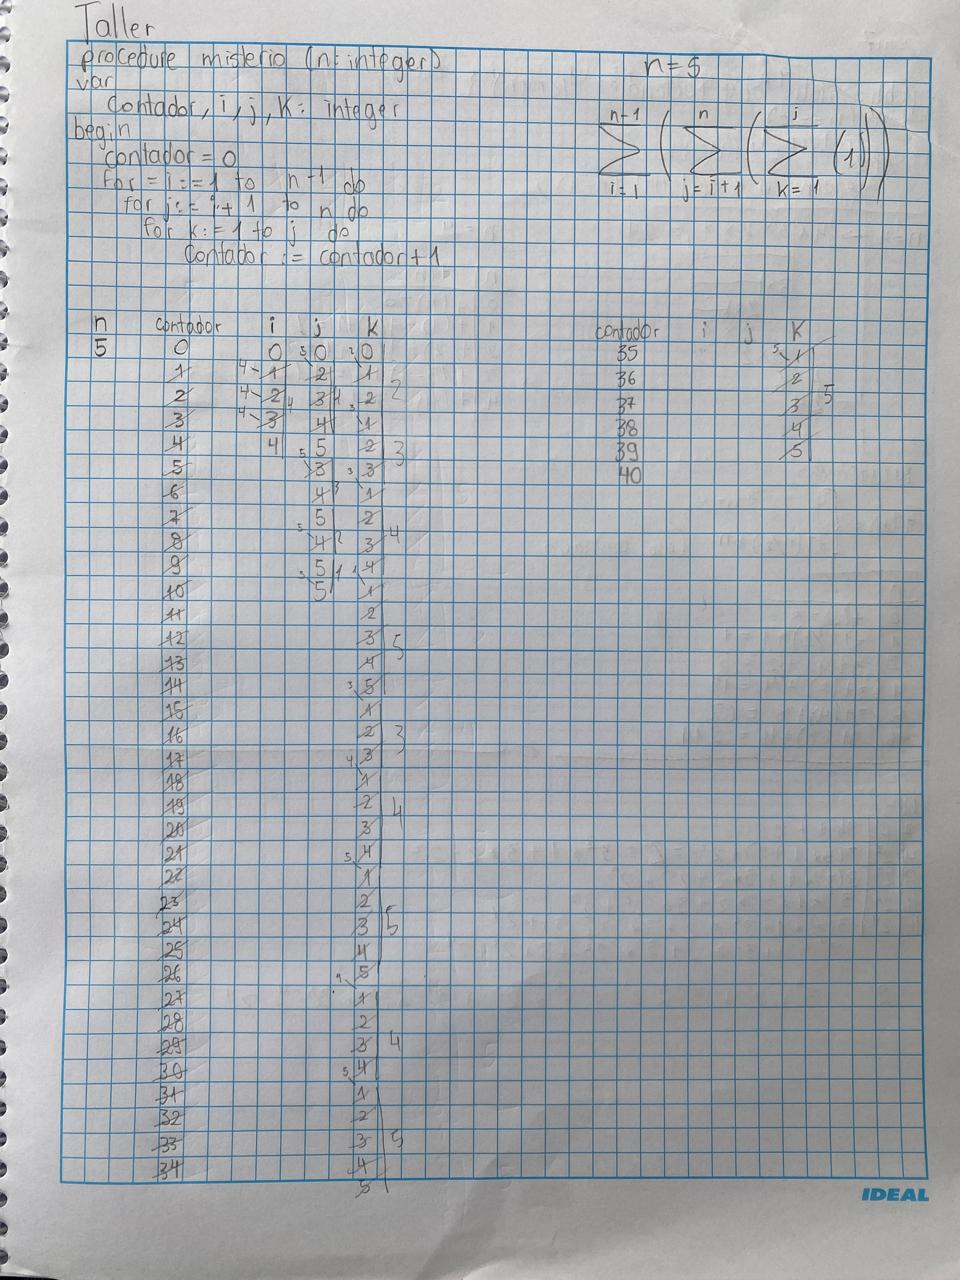 Taller
procedure misterio (n: integer)
n = 5
var
contador, i, j, k: integer
begin
contador = 0
for = i := 1 to n-1 do
for j := i + 1 to n do
for k := 1 to j do
Contador := contador + 1
n-1 n j
∑ ( ∑ ( ∑ (1)))
i=1 j=i+1 k=1
n contador i j k
5 0 0 5 0 2 0
1 4 1 2 1
2 4 2 4 3 4 3 2 2
3 4 3 4 1
4 4 5 5 2 3
5 3 3 3
6 4 3 1
7 5 5 2
8 4 2 3 4
9 5 5 1 4
10 5 1
11 2
12 3 5
13 4
14 3 5
15 1
16 2 3
17 4 3
18 1
19 2 4
20 3
21 5 4
22 1
23 2
24 3 5
25 4
26 5
27 1
28 2
29 3 4
30 5 4
31 1
32 2
33 3 5
34 4
5
contador i j k
35 5 1
36 2
37 3 5
38 4
39 5
40
IDEAL